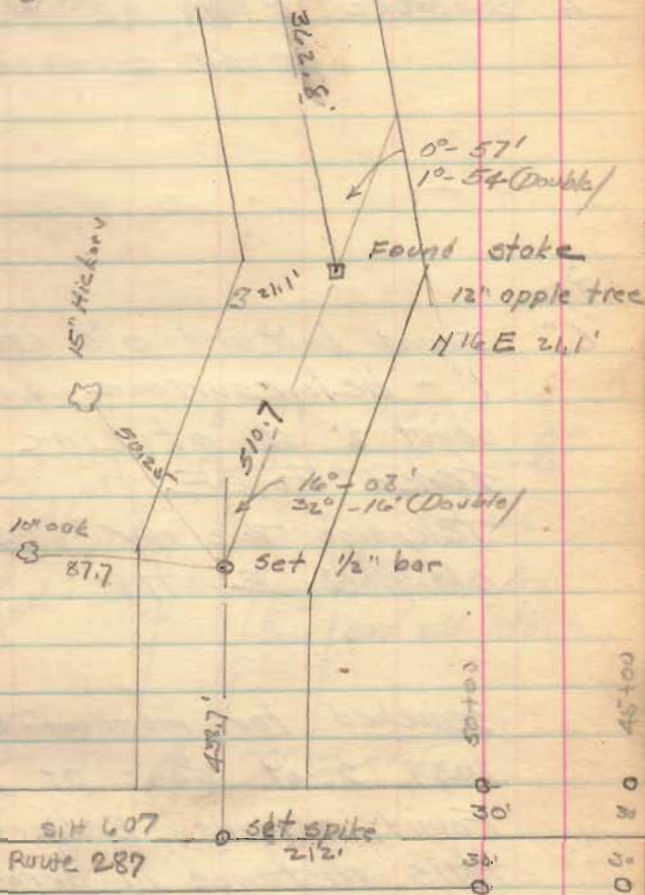 342.8'
0°- 57'
1°- 54 (Double)
Found stake
12" apple tree
N 16 E 21.1'
21.1'
15" Hickory
50.25
510.7'
16°- 08'
32° - 16' (Double)
10" oak
87.7
set 1/2" bar
50+00
45+00
30'
30
S.H 607
set spike
212'
Route 287
30'